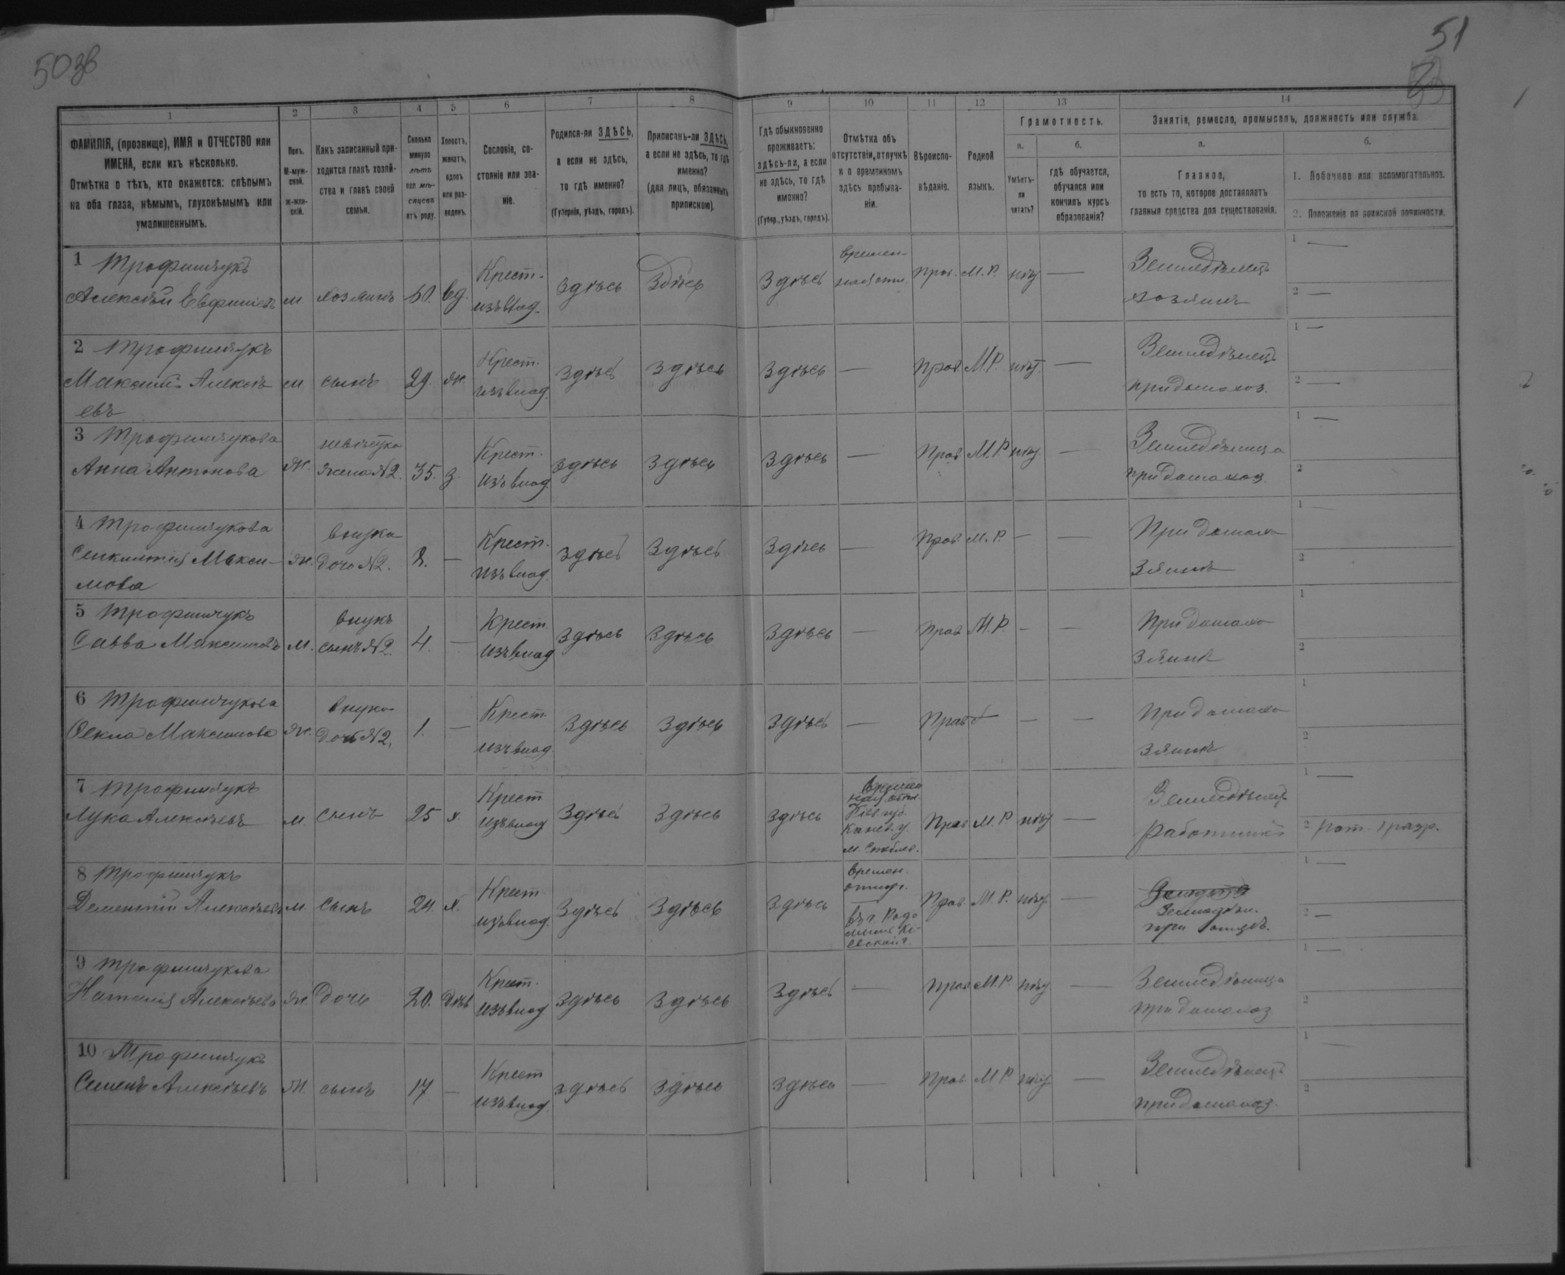 50 зв
51
1
2
3
4
5
6
7
8
9
10
11
12
13
14
ФАМИЛІЯ, (прозвище), ИМЯ и ОТЧЕСТВО или
ИМЕНА, если ихъ нѣсколько.
Отмѣтка о тѣхъ, кто окажется: слѣпымъ
на оба глаза, нѣмымъ, глухонѣмымъ или
умалишеннымъ.
Полъ.
М-муж-
ской.
ж-жен-
скій.
Какъ записанный при-
ходится главѣ хозяй-
ства и главѣ своей
семьи.
Сколько
минуло
лѣтъ
или мѣ-
сяцевъ
отъ роду.
Холостъ,
женатъ,
вдовъ
или раз-
веденъ.
Сословіе, со-
стояніе или зва-
ніе.
Родился-ли ЗДѢСЬ,
а если не здѣсь,
то гдѣ именно?
(Губернія, уѣздъ, городъ).
Приписанъ-ли ЗДѢСЬ,
а если не здѣсь, то гдѣ
именно?
(для лицъ, обязанныхъ
припискою).
Гдѣ обыкновенно
проживаетъ:
здѣсь-ли, а если
не здѣсь, то гдѣ
именно?
(Губер., уѣздъ, городъ).
Отмѣтка объ
отсутствіи, отлучкѣ
и о временномъ
здѣсь пребыва-
ніи.
Вѣроиспо-
вѣданіе.
Родной
языкъ.
Грамотность.
а.
Умѣетъ-
ли
читать?
б.
гдѣ обучается,
обучался или
кончилъ курсъ
образованія?
Занятія, ремесло, промыселъ, должность или служба.
а.
Главное,
то есть то, которое доставляетъ
главныя средства для существованія.
б.
1. Побочное или вспомогательное.
2. Положеніе по воинской повинности.
1 Трофимчукъ
Алексѣй Евфимовъ м хозяинъ 60. вд. Крест. изъ влад. здѣсь Здѣсь Здѣсь времен- Прав. М.Р. нѣт — Земледѣлецъ хозяинъ
1 —
2 —
2 Трофимчукъ
Максимъ Алексѣ-
евъ м сынъ 29. ж. Крест. изъ влад здѣсь здѣсь здѣсь — Прав М.Р. нѣт — Земледѣлецъ при домохоз.
1 —
2 —
3 Трофимчукова
Анна Антонова ж. невѣстка жена №2. 35. з. Крест. изъ влад здѣсь здѣсь здѣсь — Прав М.Р. нѣт — Земледѣлица при домохоз
1 —
2
4 Трофимчукова
Макси-
мова ж. внучка дочь №2. 8. — Крест. изъ влад. здѣсь здѣсь здѣсь — Прав М.Р. — — При домохо зяинѣ
1
2
5 Трофимчукъ
Савва Максимовъ м. внукъ сынъ №2 4. — Крест изъ влад здѣсь здѣсь здѣсь — Прав М.Р. — — При домохо зяинѣ
1
2
6 Трофимчукова
Ѳекла Максимова ж. внучка дочь №2. 1. — Крест изъ влад. здѣсь здѣсь здѣсь — Прав — — При домохо зяинѣ
1
2
7 Трофимчукъ
Лука Алексѣевъ м сынъ 25 х. Крест изъ влад здѣсь здѣсь здѣсь Прав М.Р нѣт — Земледѣлецъ Работникъ
1 —
2 рат.
8 Трофимчукъ
Дементій Алексѣевъ м. сынъ 24. х. Крест изъ влад. здѣсь здѣсь здѣсь времен. отлуч. въ г. Радо мысль Кі евской г. Прав М.Р. нѣт — Земледѣл. при отцѣ.
1 —
2 —
9 Трофимчукова
Наталія Алексѣева ж. дочь 20. дѣв Крест. изъ влад здѣсь здѣсь здѣсь — Прав М.Р нѣт — Земледѣлица при домохоз
1 —
2
10 Трофимчукъ
Семенъ Алексѣевъ М. сынъ 17. — Крест изъ влад здѣсь здѣсь здѣсь — Прав М.Р нѣт — Земледѣлецъ при домохоз.
1
2